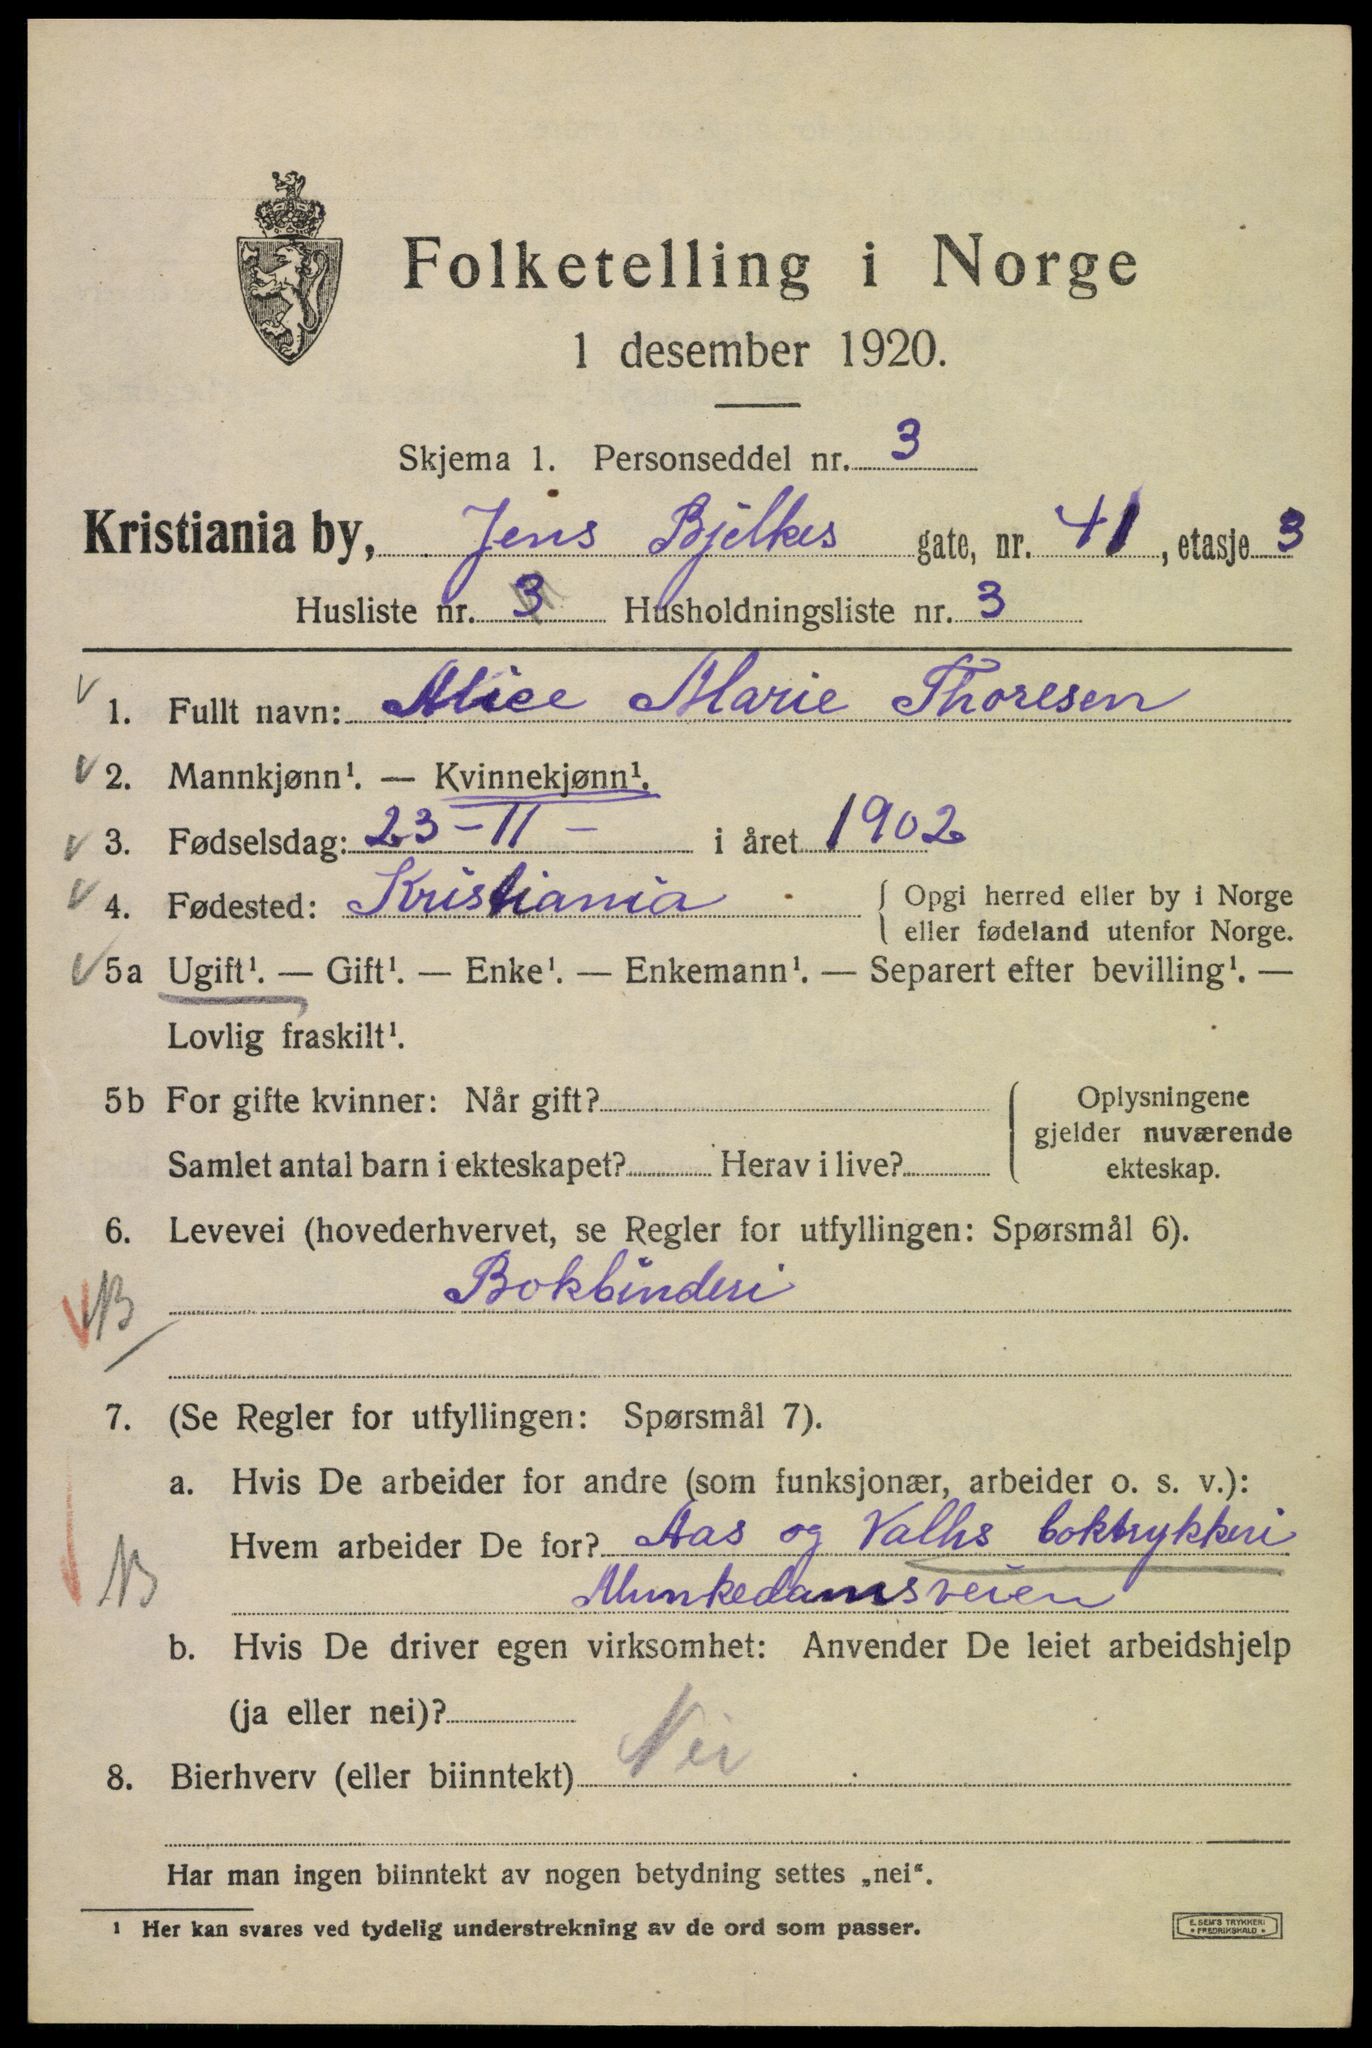 Folketelling i Norge
1 desember 1920.
Skjema 1. Personseddel nr. 3
Kristiania by, Jens Bjelkes gate, nr. 41, etasje 3
Husliste nr. 3 Husholdningsliste nr. 3
1. Fullt navn: Alice Marie Thoresen
2. Mannkjønn¹. — Kvinnekjønn¹.
3. Fødselsdag: 23-11- i året 1902
4. Fødested: Kristiania { Opgi herred eller by i Norge
eller fødeland utenfor Norge.
5a Ugift¹. — Gift¹. — Enke¹. — Enkemann¹. — Separert efter bevilling¹. —
Lovlig fraskilt¹.
5b For gifte kvinner: Når gift? Oplysningene
gjelder nuværende
Samlet antal barn i ekteskapet? Herav i live? ekteskap.
6. Levevei (hovederhvervet, se Regler for utfyllingen: Spørsmål 6).
Bokbinderi
7. (Se Regler for utfyllingen: Spørsmål 7).
a. Hvis De arbeider for andre (som funksjonær, arbeider o. s. v.):
Hvem arbeider De for? Aas og Valhs boktrykkeri
Munkedamsveien
b. Hvis De driver egen virksomhet: Anvender De leiet arbeidshjelp
(ja eller nei)?
8. Bierhverv (eller biinntekt) Nei
Har man ingen biinntekt av nogen betydning settes „nei“.
¹ Her kan svares ved tydelig understrekning av de ord som passer.
E. SEM'S TRYKKERI
• FREDRIKSHALD •